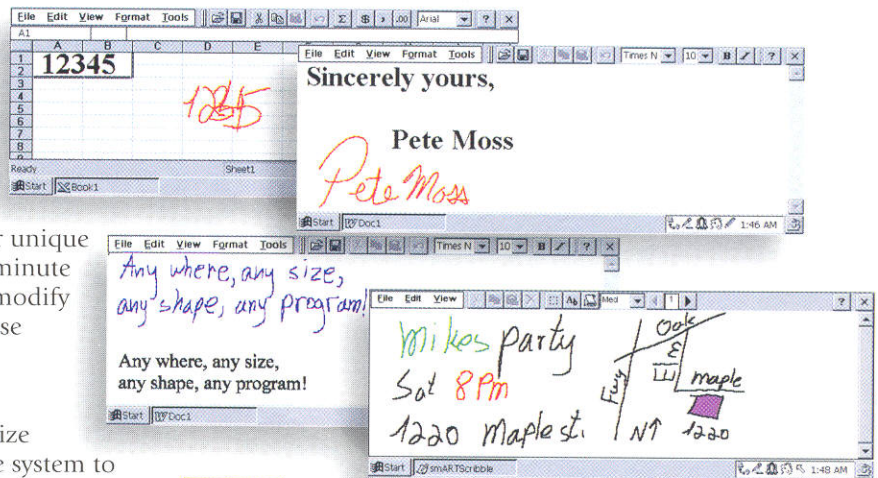 File Edit View Format Tools Σ $ , .00 Arial ? ×
A1
A B C D E
1 12345
2
3
4 12345
5
6
7
8
9
Ready Sheet1
Start Book1
File Edit View Format Tools Times N 10 B / ? ×
Sincerely yours,
Pete Moss
Pete Moss
Start Doc1 1:46 AM
r unique
minute
modify
se
ize
e system to
File Edit View Format Tools Times N 10 B / ? ×
Any where, any size,
any shape, any program!
Any where, any size,
any shape, any program!
Start Doc1
File Edit View Med 1 ? ×
Mikes party
Sat 8Pm
1220 Maple st.
Oak
Elm
Fury
maple
N↑ 1220
Start smARTScribble 1:48 AM